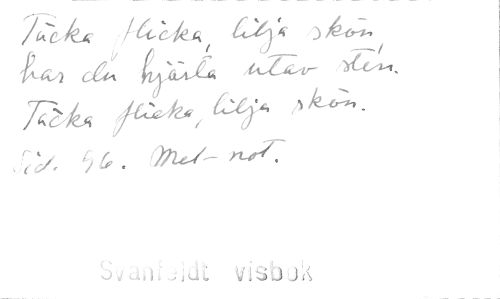 Täcka flicka, lilja skön,
har du hjärta utav sten.
Täcka flicka, lilja skön.
Sid. 96. Mel-not.
Svanfeldt visbok